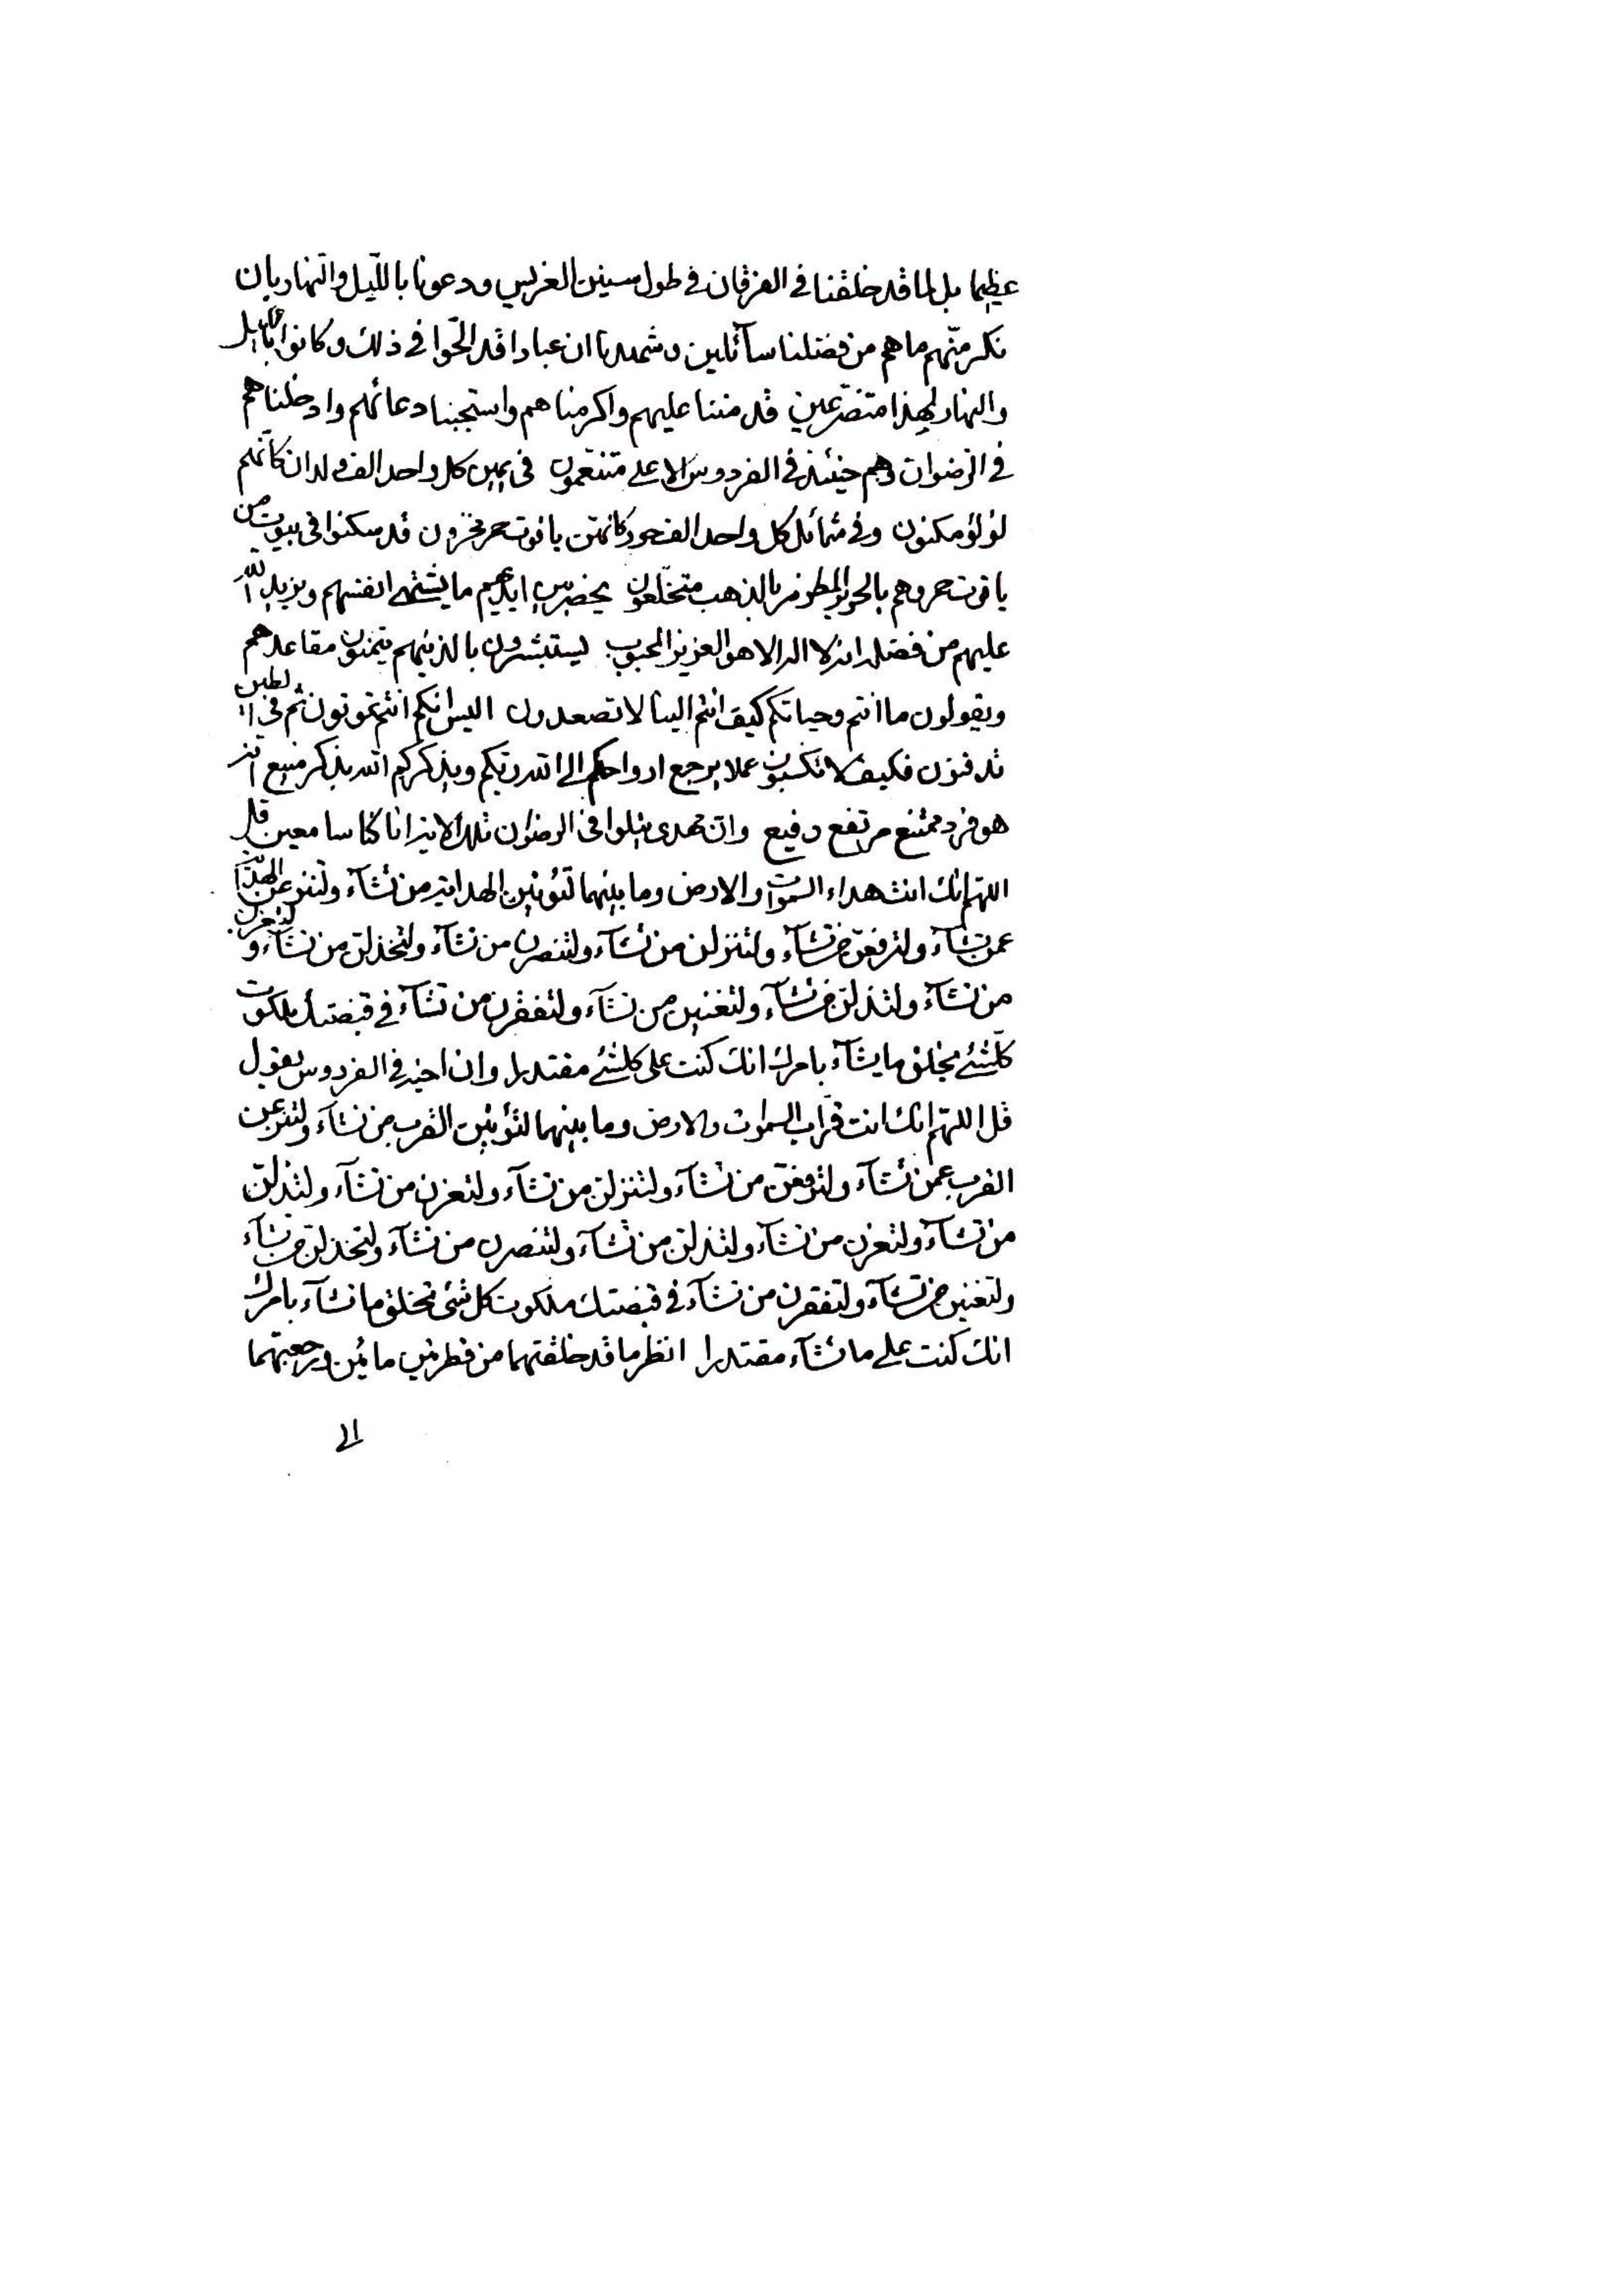 عظيما بل لما قد خلقنا في الفرقان في طول سنين الغرس ودعونا بالليل والنهار بان
نكرمنهم ما هم من فضلنا سآئلين وشهدنا ان عبادا قد الحّوا في ذلك وكانوا بالليل
والنهار لهذا متضرّعين قد مننا عليهم واكرمناهم واستجبنا دعائهم وادخلناهم
في الرضوان وهم حينئذ في الفردوس الاعلى متنعّمون في يمين كل واحد الف ولدان كانّهم
لؤلؤ مكنون وفي شمائل كل واحد الف حور كانّهن ياقوت حمر مخزون قد سكنوا في بيوت من
ياقوت حمر وهم بالحرير المطرز بالذهب متخلّعون يحضرين ايديهم ما يشتهي انفسهم ويزيد الله
عليهم من فضله انه لا اله الا هو العزيز المحبوب ليستبشرون بالذينهم يتمنون مقاعدهم
ويقولون ما انتم وحياتكم كيف انتم الينا لا تصعدون اليس انكم انتم تموتون ثم في الطين
تدفنون فكيف لا تكسبون عملا يرجع ارواحكم الى الله ربكم ويذكركم الله بذكر منيع انه
هو فرد ممتنع مرتفع رفيع وان مهدي يتلوا في الرضوان تلك الاية انا كنا سامعين قل
اللهم انك انت هداء السموات والارض وما بينهما لتؤتين الهداية من تشآء ولتنزعن الهداية
عمن تشآء ولترفعن من تشآء ولتنزلن من تشآء ولتنصرن من تشآء ولتخذلن من تشآء ولتعزن
من تشآء ولتذلن من تشآء ولتغنين من تشآء ولتفقرن من تشآء في قبضتك ملكوت
كلشئ تخلق ما يشآء بامرك انك كنت على كلشئ مقتدرا وان اخيه في الفردوس يقول
قل اللهم انك انت قرّاب السموات والارض وما بينهما لتؤتين القرب من تشآء ولتنزعن
القرب عمن تشآء ولترفعن من تشآء ولتنزلن من تشآء ولتعزن من تشآء ولتذلن
من تشآء ولتعزن من تشآء ولتذلن من تشآء ولتنصرن من تشآء ولتخذلن من تشآء
ولتغنين من تشآء ولتفقرن من تشآء في قبضتك ملكوت كل شئ تخلق ما تشآء بامرك
انك كنت على ما تشآء مقتدرا انظر ما قد خلقتهما من قطرتين مائين ورجعتهما
الى